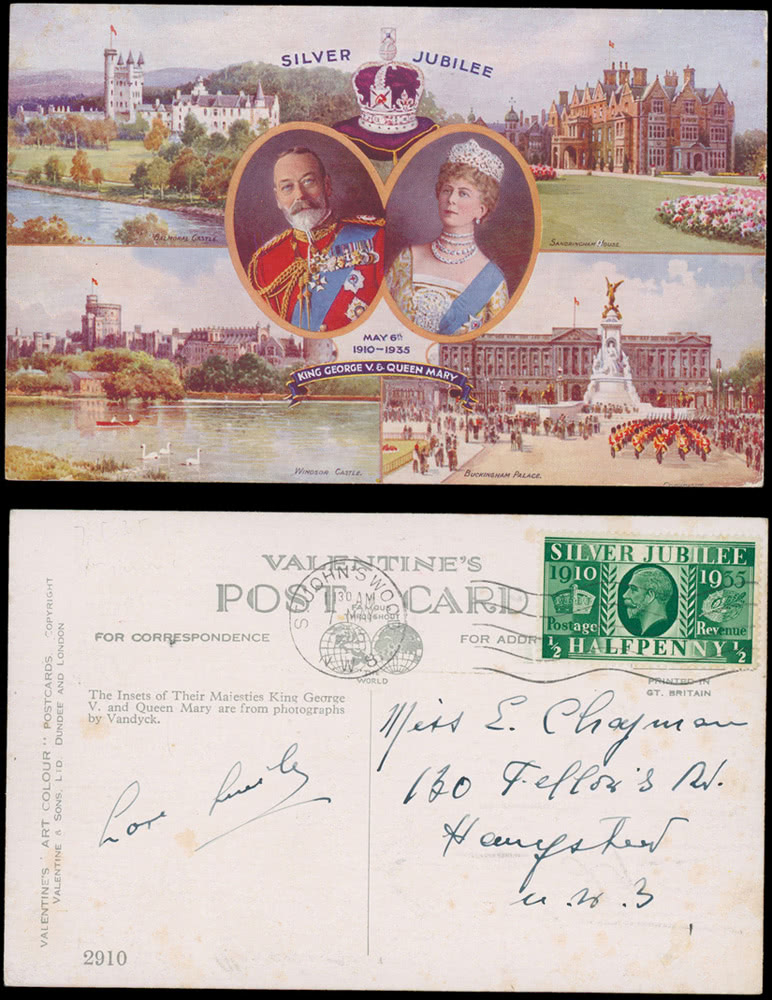 SILVER JUBILEE
BALMORAL CASTLE.
SANDRINGHAM HOUSE.
MAY 6th
1910-1935
KING GEORGE V. & QUEEN MARY
WINDSOR CASTLE.
BUCKINGHAM PALACE.
VALENTINE'S
POST CARD
FAMOUS
THROUGHOUT
THE
WORLD
FOR CORRESPONDENCE
FOR ADDR
ST JOHN'S WOOD
30 AM
N.W.8.
SILVER JUBILEE
1910 1935
Postage Revenue
½ HALFPENNY ½
PRINTED IN
GT. BRITAIN
VALENTINE'S "ART COLOUR" POSTCARDS COPYRIGHT
VALENTINE & SONS, LTD. DUNDEE AND LONDON
The Insets of Their Majesties King George
V. and Queen Mary are from photographs
by Vandyck.
Love
Miss E. Chapman
130 Fellow's Rd.
Hampstead
N.W.3
2910